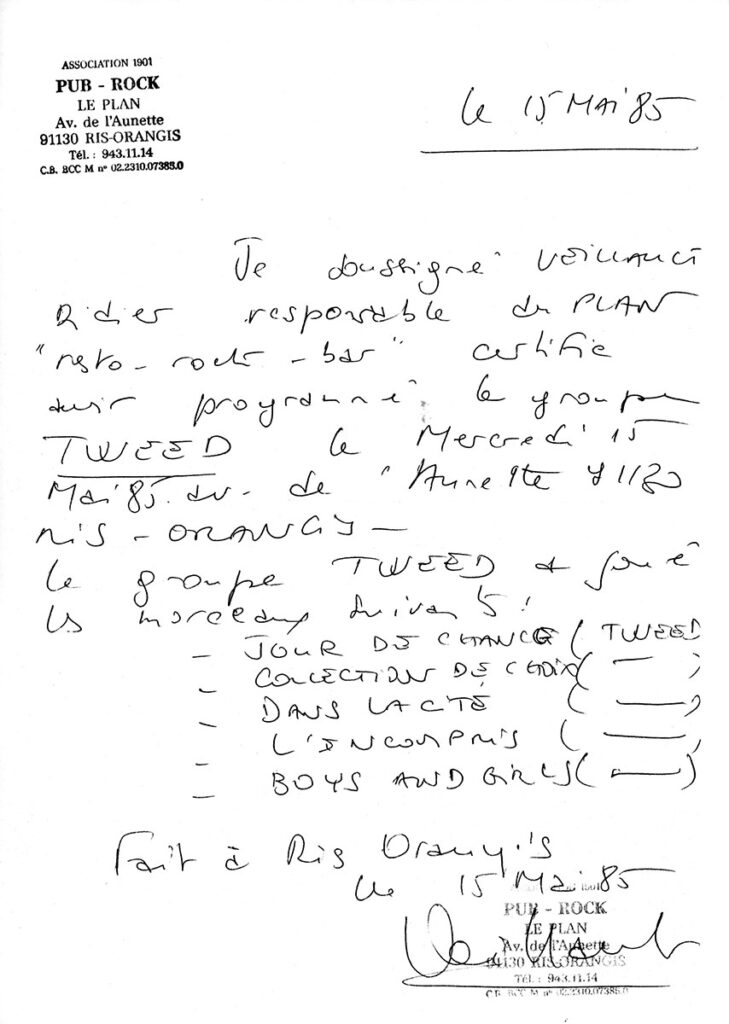 ASSOCIATION 1901
PUB - ROCK
LE PLAN
Av. de l'Aunette
91130 RIS-ORANGIS
Tél. : 943.11.14
C.B. BCC M n° 02.2310.07385.0
le 15 MAI 85
Je soussigné VEILLAULT
Didier responsable du PLAN
"resto-rock-bar" certifie
avoir programmé le groupe
TWEED le Mercredi 15
Mai 85 av. de l'Aunette 91130
RIS-ORANGIS-
le groupe TWEED a joué
les morceaux suivants :
- JOUR DE CHANCE (TWEED
- COLLECTION DE CHOIX ( — )
- DANS LA CITÉ ( — )
- L'INCOMPRIS ( — )
- BOYS AND GIRLS ( — )
Fait à Ris Orangis
le 15 Mai 85
PUB - ROCK
LE PLAN
Av. de l'Aunette
91130 RIS-ORANGIS
Tél. : 943.11.14
C.B. BCC M n° 02.2310.07385.0